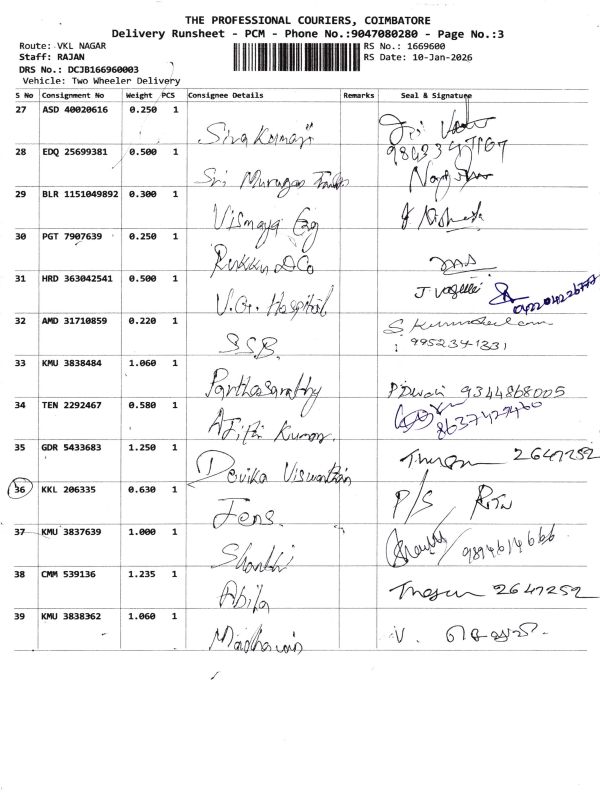 THE PROFESSIONAL COURIERS, COIMBATORE
Delivery Runsheet - PCM - Phone No.:9047080280 - Page No.:3
Route: VKL NAGAR RS No.: 1669600
Staff: RAJAN RS Date: 10-Jan-2026
DRS No.: DCJB166960003
Vehicle: Two Wheeler Delivery
S No Consignment No Weight PCS Consignee Details Remarks Seal & Signature
27 ASD 40020616 0.250 1
Siva Kumar
28 EDQ 25699381 0.500 1
Sri Murugan
29 BLR 1151049892 0.300 1
Vismaya
30 PGT 7907639 0.250 1
Rukku & Co
31 HRD 363042541 0.500 1
V.G. Hospital
32 AMD 31710859 0.220 1
S.S.B. 9952341331
33 KMU 3838484 1.060 1
Parthasarathy 9344868005
34 TEN 2292467 0.580 1
Ajith Kumar 8637427460
35 GDR 5433683 1.250 1
Devika Viswanthan 2647252
36 KKL 206335 0.630 1
Jens. P/S
37 KMU 3837639 1.000 1
Shanthi 9894614666
38 CMM 539136 1.235 1
Abila 2647252
39 KMU 3838362 1.060 1
Madhavan V.